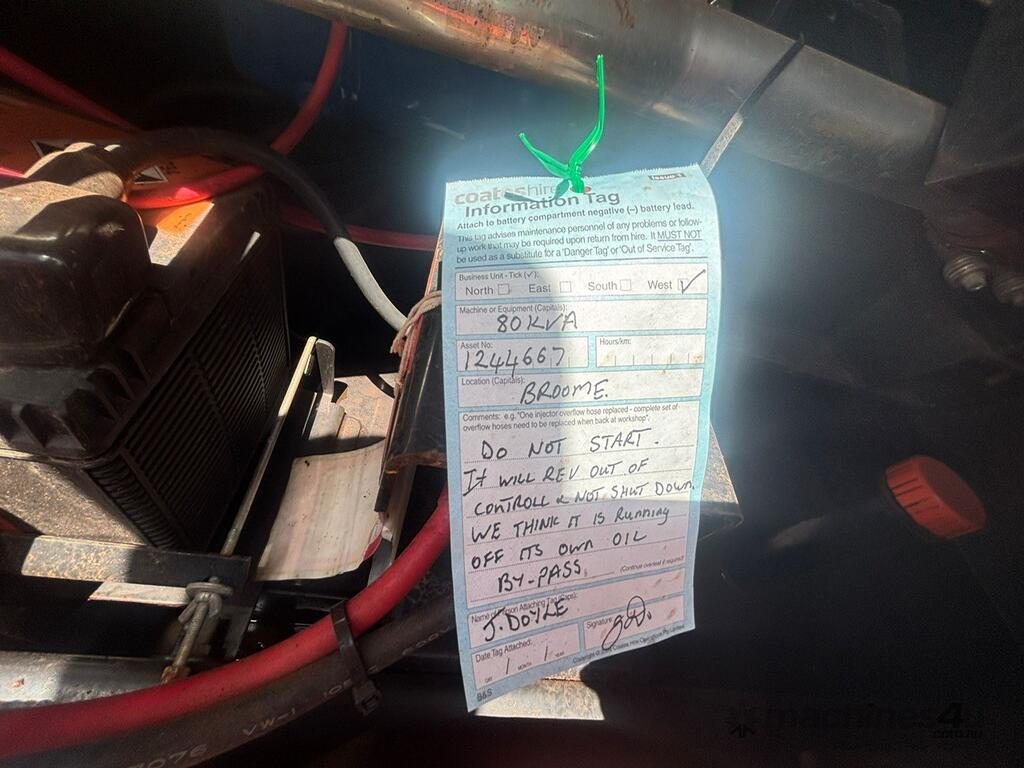 coateshire
Issue 1
Information Tag
Attach to battery compartment negative (–) battery lead.
This tag advises maintenance personnel of any problems or follow-
up work that may be required upon return from hire. It MUST NOT
be used as a substitute for a 'Danger Tag' or 'Out of Service Tag'.
Business Unit - Tick (✓):
North East South West ✓
Machine or Equipment (Capitals):
80KVA
Asset No: Hours/km:
1244667
Location (Capitals):
BROOME.
Comments: e.g. "One injector overflow hose replaced - complete set of
overflow hoses need to be replaced when back at workshop"
DO NOT START.
It WILL REV OUT OF
CONTROLL & NOT SHUT DOWN.
WE THINK IT IS Running
OFF ITS OWN OIL
BY-PASS.
(Continue overleaf if required)
Name of Person Attaching Tag (Caps):
J. DOYLE
Signature:
J.D.
Date Tag Attached:
1 1
DAY MONTH YEAR
B&S
VW-1
machines4u
.com.au